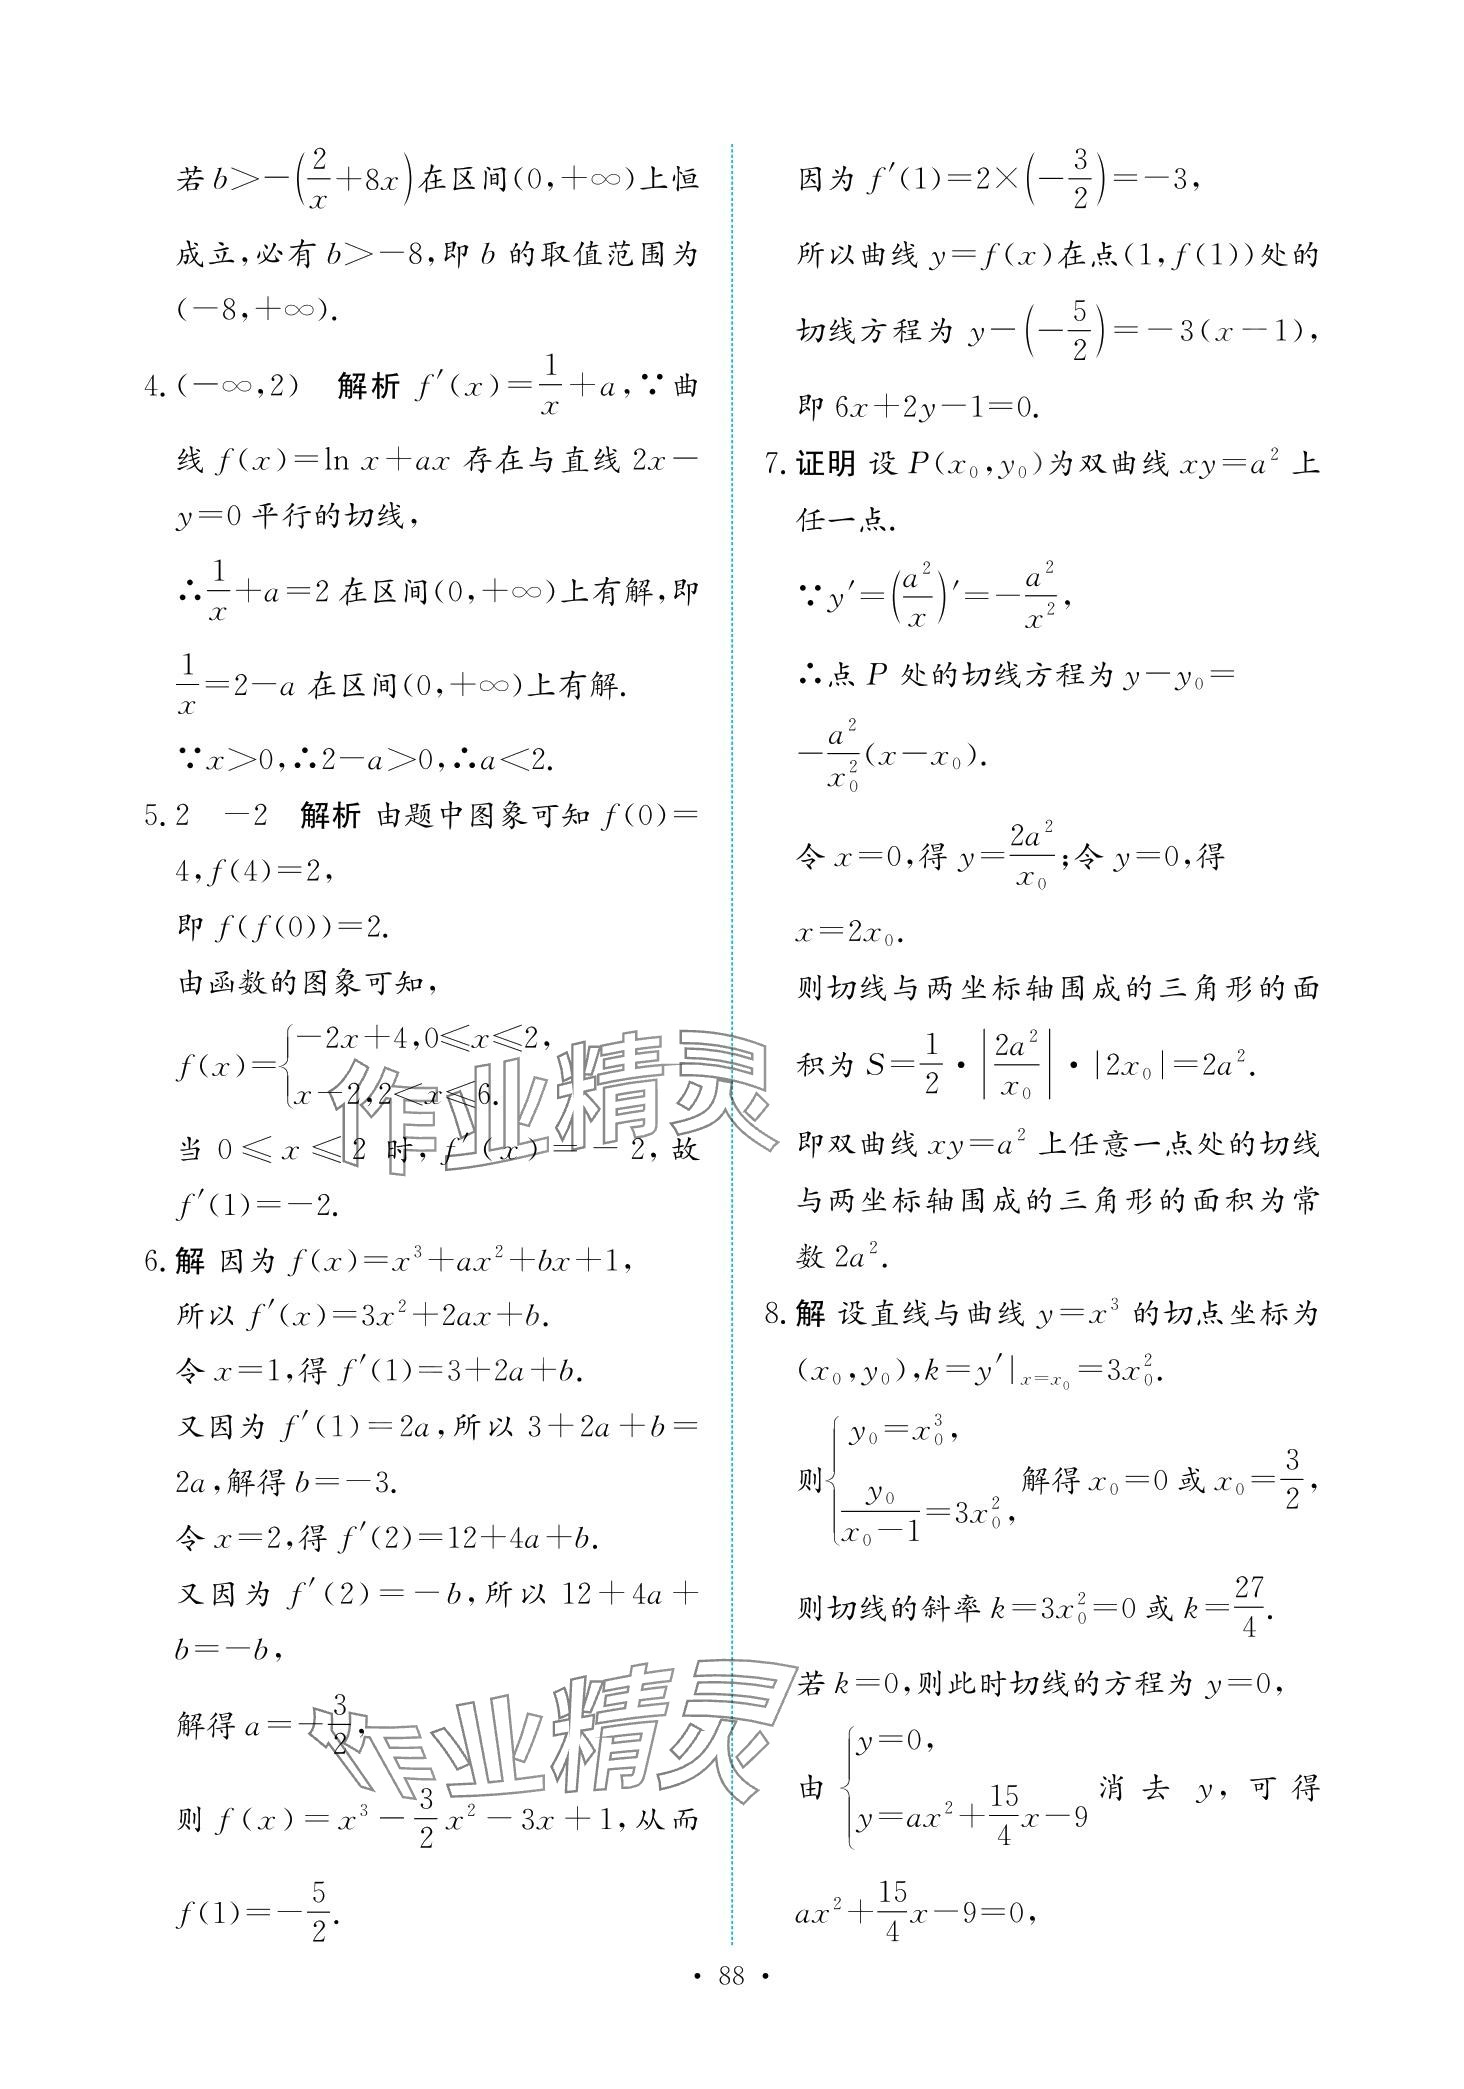 若 b>-(2/x+8x)在区间(0,+∞)上恒
成立,必有 b>-8,即 b 的取值范围为
(-8,+∞).
4. (-∞,2) 解析 f′(x)=1/x+a,∵曲
线 f(x)=ln x+ax 存在与直线 2x-
y=0 平行的切线,
∴1/x+a=2 在区间(0,+∞)上有解,即
1/x=2-a 在区间(0,+∞)上有解.
∵x>0,∴2-a>0,∴a<2.
5. 2 -2 解析 由题中图象可知 f(0)=
4,f(4)=2,
即 f(f(0))=2.
由函数的图象可知,
f(x)={-2x+4,0≤x≤2,
x-2,2<x≤6.
当 0≤x≤2 时,f′(x)=-2,故
f′(1)=-2.
6. 解 因为 f(x)=x³+ax²+bx+1,
所以 f′(x)=3x²+2ax+b.
令 x=1,得 f′(1)=3+2a+b.
又因为 f′(1)=2a,所以 3+2a+b=
2a,解得 b=-3.
令 x=2,得 f′(2)=12+4a+b.
又因为 f′(2)=-b,所以 12+4a+
b=-b,
解得 a=-3/2,
则 f(x)=x³-3/2x²-3x+1,从而
f(1)=-5/2.
因为 f′(1)=2×(-3/2)=-3,
所以曲线 y=f(x)在点(1,f(1))处的
切线方程为 y-(-5/2)=-3(x-1),
即 6x+2y-1=0.
7. 证明 设 P(x₀,y₀)为双曲线 xy=a² 上
任一点.
∵y′=(a²/x)′=-a²/x²,
∴点 P 处的切线方程为 y-y₀=
-a²/x₀²(x-x₀).
令 x=0,得 y=2a²/x₀;令 y=0,得
x=2x₀.
则切线与两坐标轴围成的三角形的面
积为 S=1/2·|2a²/x₀|·|2x₀|=2a².
即双曲线 xy=a² 上任意一点处的切线
与两坐标轴围成的三角形的面积为常
数 2a².
8. 解 设直线与曲线 y=x³ 的切点坐标为
(x₀,y₀),k=y′|x=x₀=3x₀².
则{y₀=x₀³,
y₀/(x₀-1)=3x₀², 解得 x₀=0 或 x₀=3/2,
则切线的斜率 k=3x₀²=0 或 k=27/4.
若 k=0,则此时切线的方程为 y=0,
由{y=0,
y=ax²+15/4x-9 消去 y,可得
ax²+15/4x-9=0,
· 88 ·
作业精灵
作业精灵